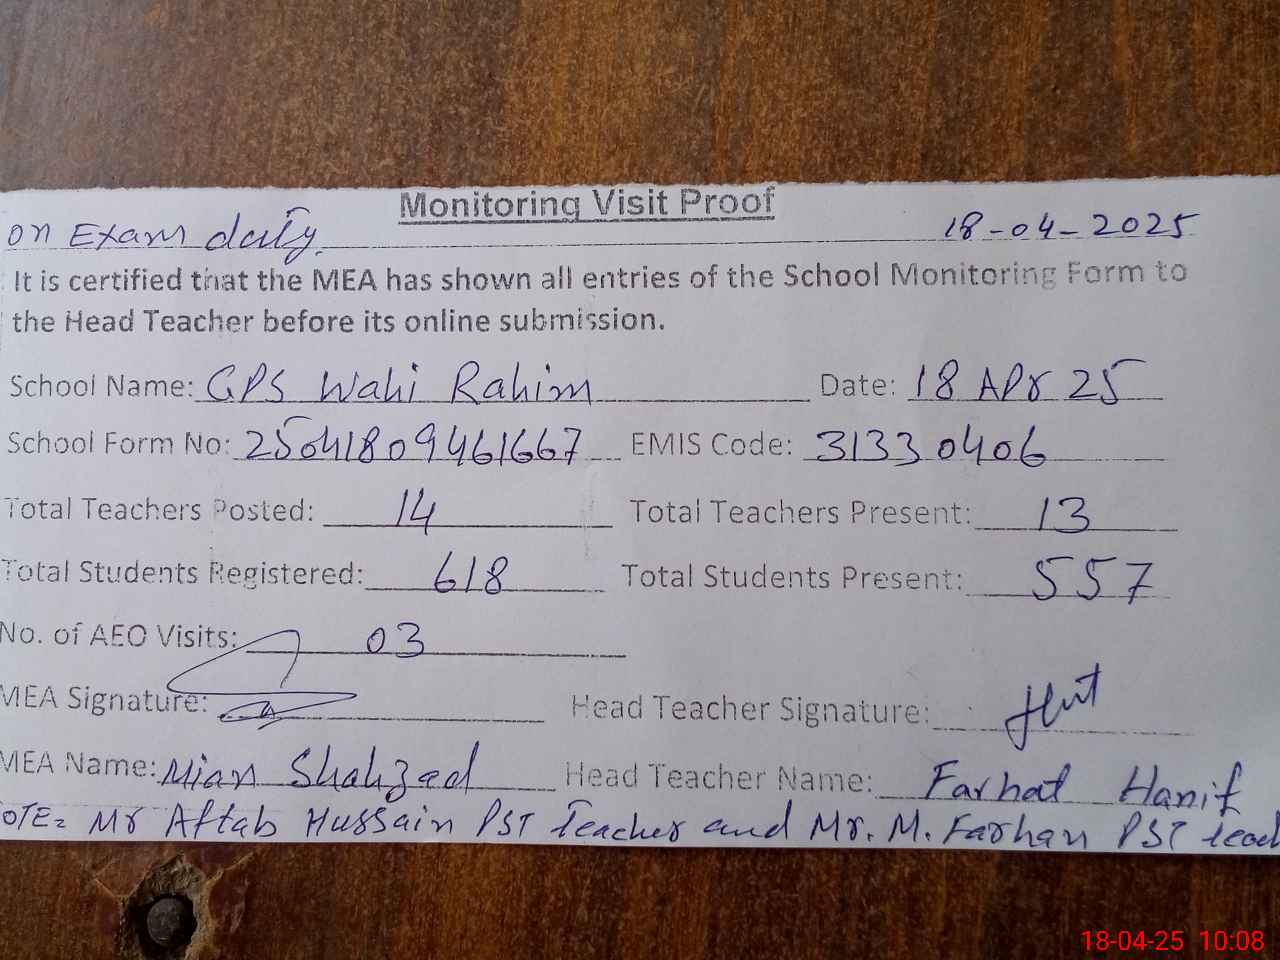 Monitoring Visit Proof
on Exam daity. 18-04-2025
It is certified that the MEA has shown all entries of the School Monitoring Form to
the Head Teacher before its online submission.
School Name: GPS Wahi Rahim Date: 18 APr 25
School Form No: 25041809461667 EMIS Code: 31330406
Total Teachers Posted: 14 Total Teachers Present: 13
Total Students Registered: 618 Total Students Present: 557
No. of AEO Visits: 03
MEA Signature: Head Teacher Signature:
MEA Name: Mian Shahzad Head Teacher Name: Farhat Hanif
OTE= Mr Aftab Hussain PST Teacher and Mr. M. Farhan PST teach
18-04-25 10:08